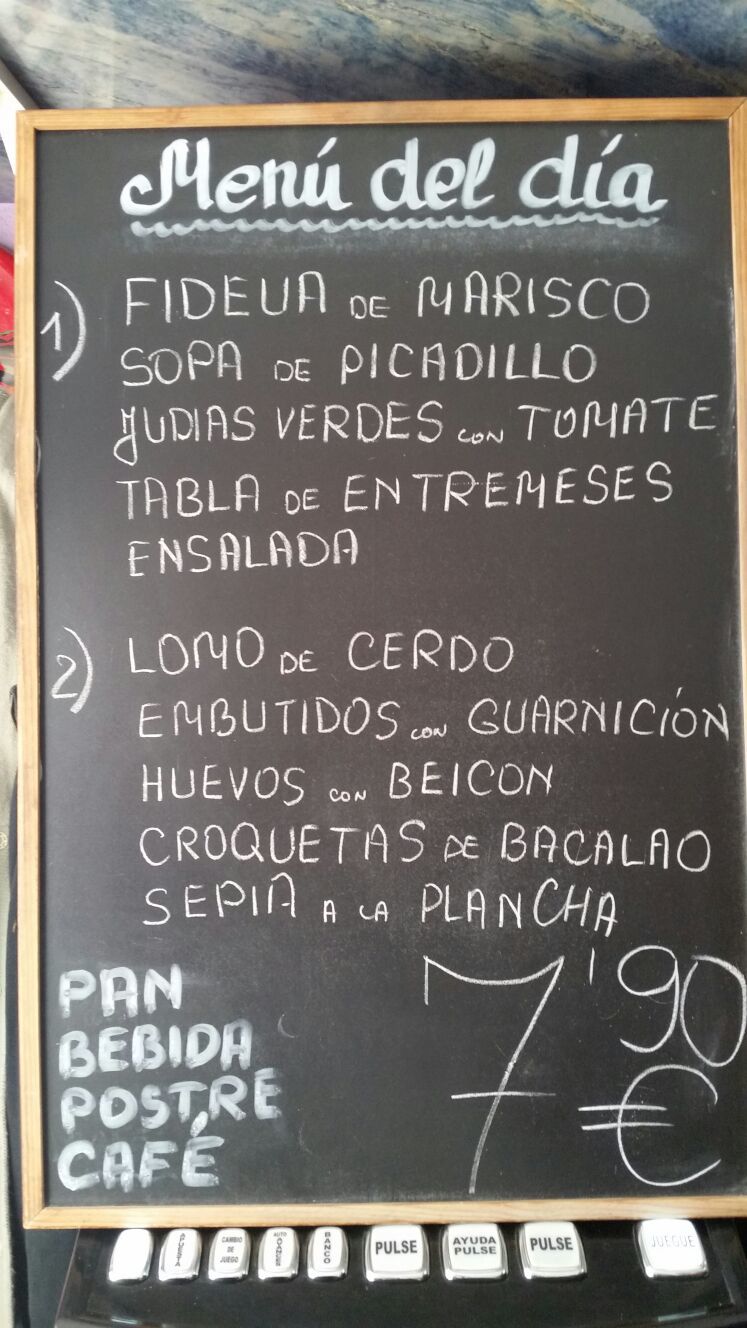 Menú del día
1) FIDEUA DE MARISCO
SOPA DE PICADILLO
JUDIAS VERDES CON TOMATE
TABLA DE ENTREMESES
ENSALADA
2) LOMO DE CERDO
EMBUTIDOS CON GUARNICIÓN
HUEVOS CON BEICON
CROQUETAS DE BACALAO
SEPIA A LA PLANCHA
PAN
BEBIDA
POSTRE
CAFÉ
7'90
€
APUESTA
CAMBIO
DE
JUEGO
AUTO
AVANCES
BANCO
PULSE
AYUDA
PULSE
PULSE
JUEGUE